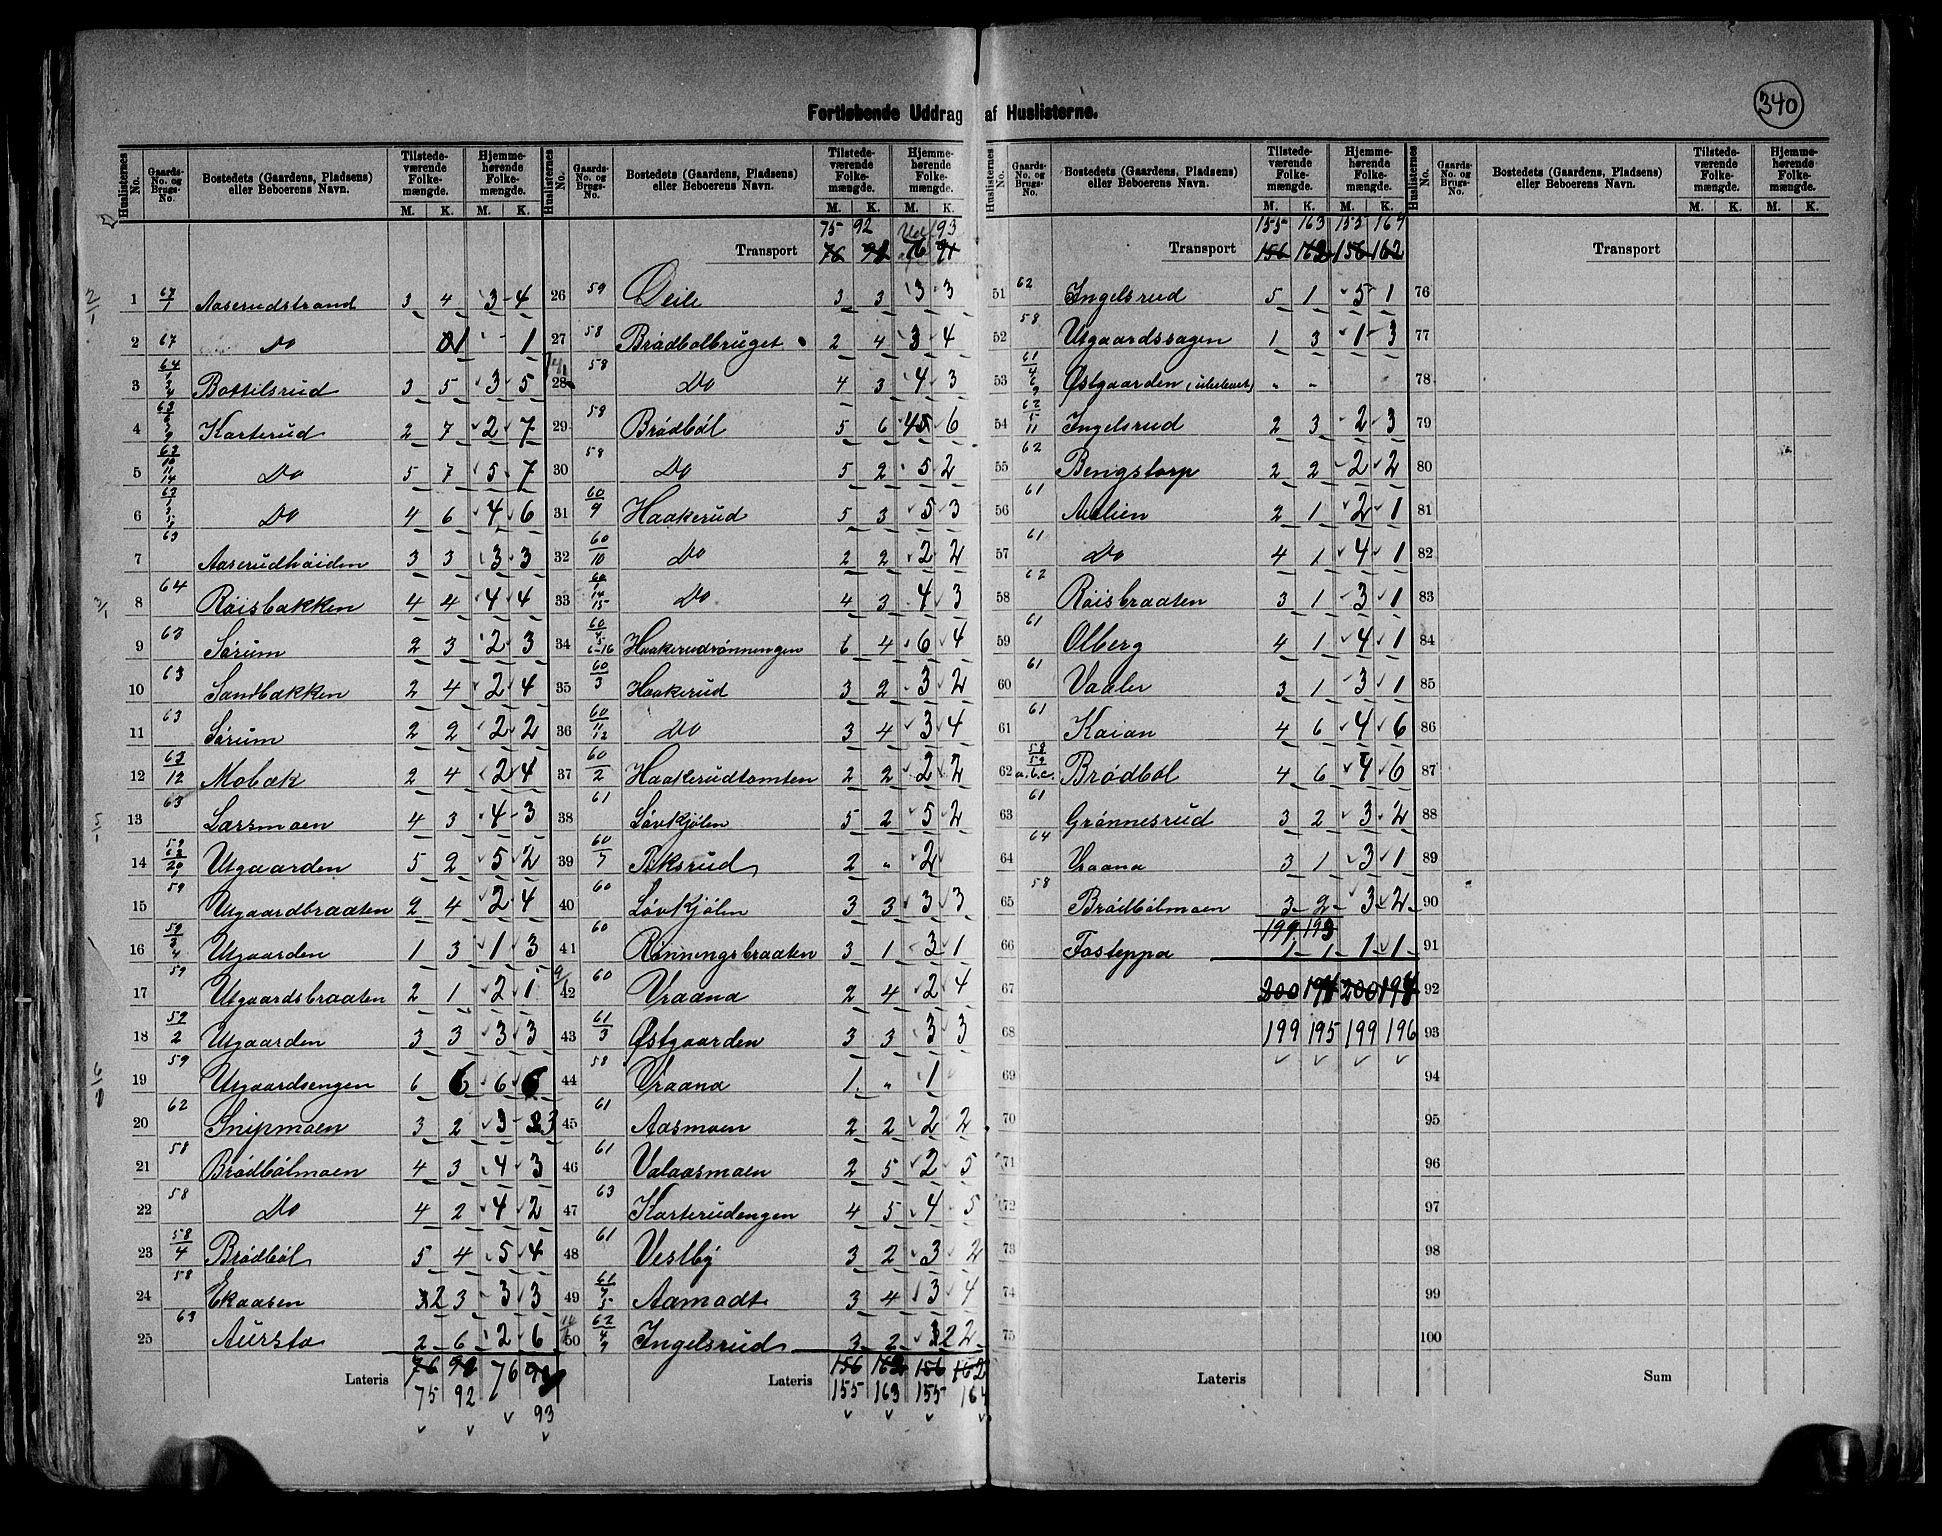 340
Fortløbende Uddrag af Huslisterne.
Huslisternes No. | Gaards-No. og Brugs-No. | Bostedets (Gaardens, Pladsens) eller Beboerens Navn. | Tilstedeværende Folkemængde. M. K. | Hjemmehørende Folkemængde. M. K.
1 67/7 Aaserudstrand 3 4 3 4
2 67 Do 01 1
3 64 Bottilsrud 3 5 3 5
4 63 Karterud 2 7 2 7
5 Do 5 7 5 7
6 Do 4 6 4 6
7 63 Aaserudhøiden 3 3 3 3
8 64 Røisbakken 4 4 4 4
9 63 Sørum 2 3 2 3
10 63 Sandbakken 2 4 2 4
11 63 Sørum 2 2 2 2
12 63/12 Mobæk 2 4 2 4
13 63 Larsmoen 4 3 4 3
14 Utgaarden 5 2 5 2
15 59 Utgaardbraaten 2 4 2 4
16 59/3/4 Utgaarden 1 3 1 3
17 59 Utgaardsbraaten 2 1 2 1
18 59/2 Utgaarden 3 3 3 3
19 59 Utgaardsengen 6 6 6 6
20 62 Snipmoen 3 2 3 3
21 58 Brødbølmoen 4 3 4 3
22 58 Do 4 2 4 2
23 58/4 Brødbøl 5 4 5 4
24 58 Ekaasen 2 3 3 3
25 63 Aursta 2 6 2 6
Lateris 76 92 76
75 92 93
75 92 93
Transport 76 76
26 59 Deile 3 3 3 3
27 58 Brødbølbruget 2 4 3 4
28 58 Do 4 3 4 3
29 58 Brødbøl 5 6 45 6
30 58 Do 5 2 5 2
31 60/9 Haakerud 5 3 5 3
32 60/10 Do 2 2 2 2
33 60/14/15 Do 4 3 4 3
34 60/4/5/6-16 Haakerudrønningen 6 4 6 4
35 60/3 Haakerud 3 2 3 2
36 60/11/12 Do 3 4 3 4
37 60/2 Haakerudtomten 2 2 2 2
38 61 Løvkjølen 5 2 5 2
39 60/7 Riksrud 2 " 2
40 60 Løvkjølen 3 3 3 3
41 60 Rønningsbraaten 3 1 3 1
42 60 Vraana 2 4 2 4
43 61/3 Østgaarden 3 3 3 3
44 58 Vraana 1 " 1
45 61 Aasmoen 2 2 2 2
46 61 Valaasmoen 2 5 2 5
47 63 Karterudengen 4 5 4 5
48 61 Vestby 3 2 3 2
49 61/5 Aamodt 3 4 3 4
50 62/4/9 Ingelsrud 3 2 2 2
Lateris 156 162 156 162
155 163 155 164
155 163 155 164
Transport 156 162 156 162
51 62 Ingelsrud 5 1 5 1
52 58 Utgaardssagen 1 3 1 3
53 61/4/6/9 Østgaarden (ubeboet) " "
54 62/5/11 Ingelsrud 2 3 2 3
55 62 Bengstorp 2 2 2 2
56 61 Malien 2 1 2 1
57 61 Do 4 1 4 1
58 62 Røisbraaten 3 1 3 1
59 61 Olberg 4 1 4 1
60 61 Vaaler 3 1 3 1
61 61 Kaian 4 6 4 6
62 58/59 a.b.c. Brødbøl 4 6 4 6
63 61 Grønnesrud 3 2 3 2
64 64 Vraana 3 1 3 1
65 58 Brødbølmoen 3 2 3 2
199 193
66 Fosteppa 1 1 1 1
67 200 194 200 194
68 199 195 199 196
69
70
71
72
73
74
75
Lateris
Transport
76
77
78
79
80
81
82
83
84
85
86
87
88
89
90
91
92
93
94
95
96
97
98
99
100
Sum